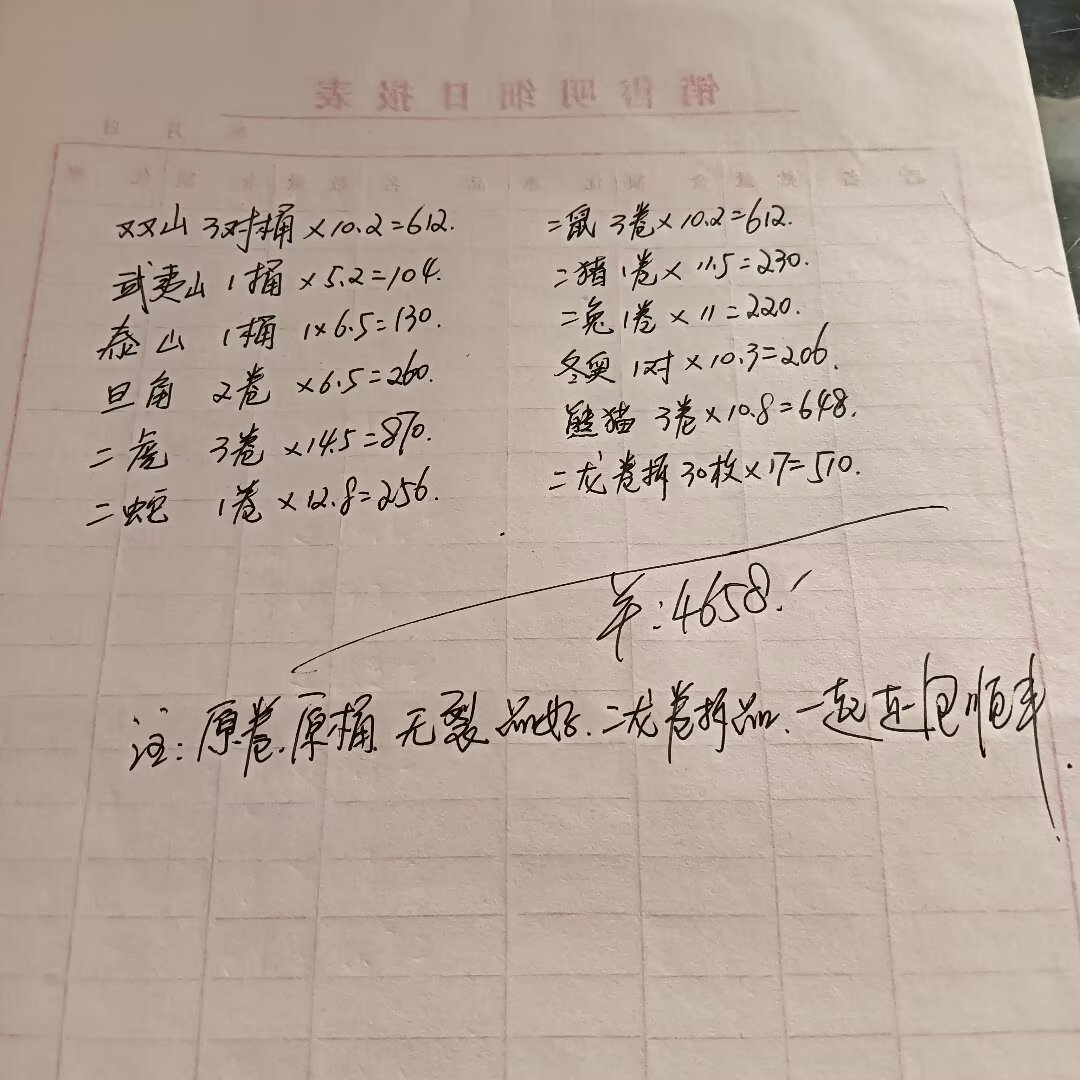 销售明细日报表
年 月 日
双山 3对桶×10.2=612.
武夷山 1桶 ×5.2=104.
泰山 1桶 1×6.5=130.
旦角 2卷 ×6.5=260.
二虎 3卷 ×14.5=870.
二蛇 1卷 ×12.8=256.
二鼠 3卷×10.2=612.
二猪 1卷 × 11.5=230.
二兔 1卷 × 11=220.
冬奥 1对×10.3=206.
熊猫 3卷×10.8=648.
二龙卷拆 30枚×17=510.
羊:4658.
注:原卷.原桶.无裂品好.二龙卷拆品.一起走包顺丰.